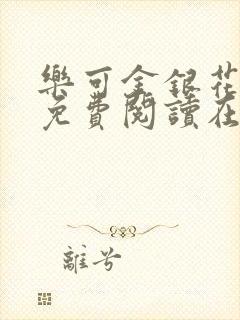 樂可金銀花
免費閱讀在
離兮